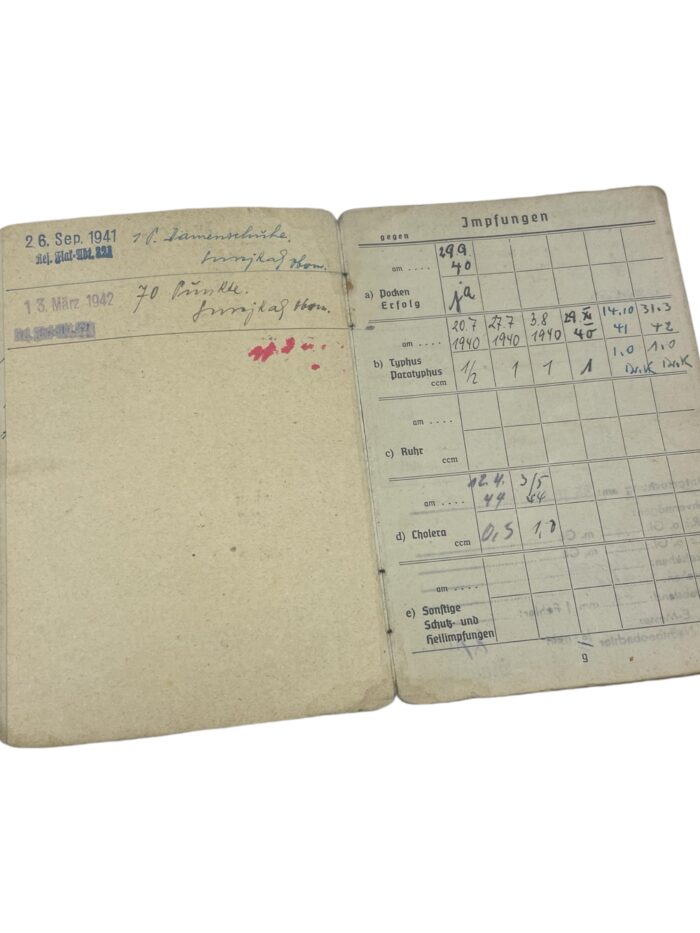 26. Sep. 1941 1 P. Damenschuhe.
Res. Flak-Abt. 321
13. März 1942 70 Punkte.
Impfungen
gegen
am .... 29.9. 40
a) Pocken
Erfolg ja
am .... 20.7 1940 27.7 1940 3.8 1940 29 XI 40 14.10 41 31.3 42
b) Typhus
Paratyphus
ccm 1/2 1 1 1 1.0 1.0
am ....
c) Ruhr
ccm
am .... 12.4. 44 3/5 44
d) Cholera
ccm 0,5 1,0
am ....
e) Sonstige
Schutz- und
Heilimpfungen
9